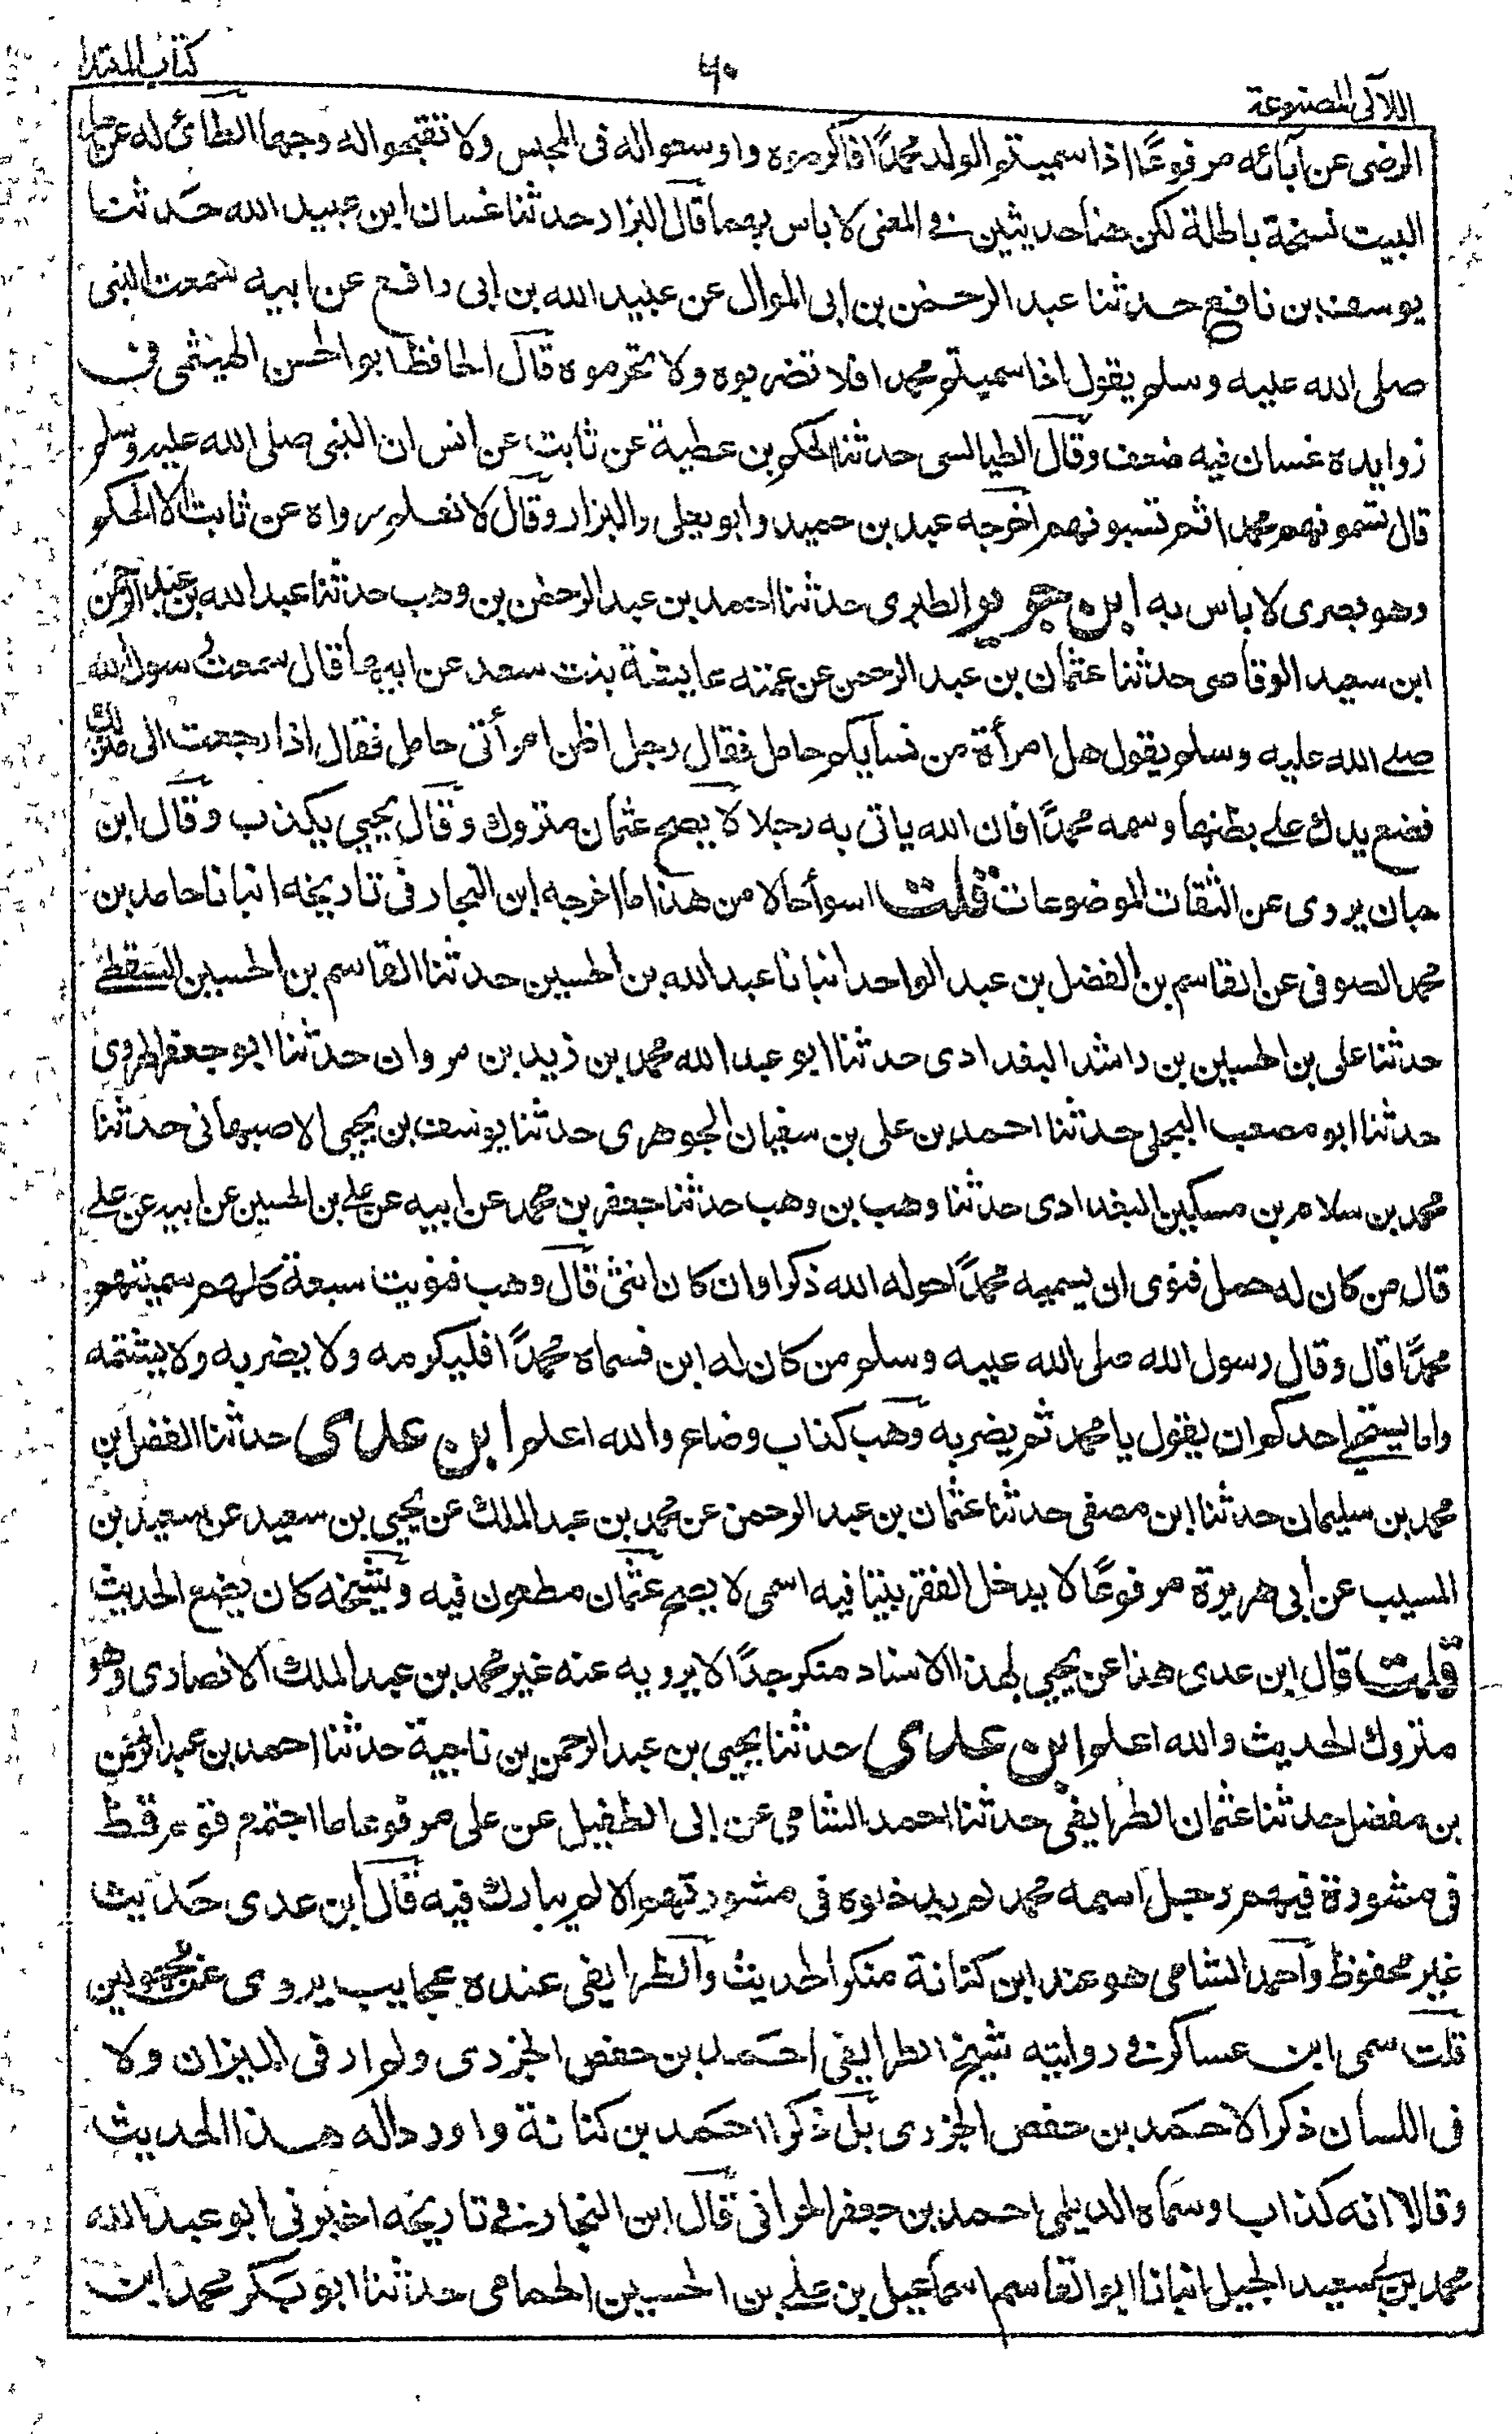 كتاب المبتدا
٦٠
اللآلى المصنوعة
الرضى عن آبائه مرفوعًا اذا سميتم الولد محمدًا فاكرموه واوسعوا له فى المجلس ولا تقبحوا له وجها الطائى له عن اهل
البيت نسخة باطلة لكن هنا حديثين فى المعنى لا باس بهما قال البزار حدثنا غسان ابن عبيد الله حدثنا
يوسف بن نافع حدثنا عبد الرحمٰن بن ابى الموال عن عبيد الله بن ابى رافع عن ابيه سمعت النبى
صلى الله عليه وسلم يقول اذا سميتم محمدا فلا تضربوه ولا تحرموه قال الحافظ ابو الحسن الهيثمى فى
زوايده غسان فيه ضعف وقال الطيالسى حدثنا الحكم بن عطية عن ثابت عن انس ان النبى صلى الله عليه وسلم
قال تسمونهم محمدا ثم تسبونهم اخرجه عبد بن حميد وابو يعلى والبزار وقال لا نعلم رواه عن ثابت الا الحكم
وهو بصرى لا باس به ابن جرير الطبرى حدثنا احمد بن عبد الرحمٰن بن وهب حدثنا عبد الله بن عبد الرحمن
ابن سعيد الوقاصى حدثنا عثمان بن عبد الرحمن عن عمته عايشة بنت سعد عن ابيها قال سمعت رسول الله
صلے الله عليه وسلم يقول هل امرأة من نسايكم حامل فقال رجل اظن امرأتى حامل فقال اذا رجعت الى منزلك
فضع يدك علے بطنها وسمه محمدًا فان الله ياتى به رجلا لا يصح عثمان متروك وقال يحيى يكذب وقال ابن
حبان يروى عن الثقات الموضوعات قلت اسوأ حالا من هذا ما اخرجه ابن النجار فى تاريخه انبانا حامد بن
محمد الصوفى عن القاسم بن الفضل بن عبد الواحد انبانا عبد الله بن الحسين حدثنا القاسم بن الحسين السقطے
حدثنا على بن الحسين بن راشد البغدادى حدثنا ابو عبد الله محمد بن زيد بن مروان حدثنا ابو جعفر الهروى
حدثنا ابو مصعب البجلى حدثنا احمد بن على بن سفيان الجوهرى حدثنا يوسف بن يحيى الاصبهانى حدثنا
محمد بن سلام بن مسكين البغدادى حدثنا وهب بن وهب حدثنا جعفر بن محمد عن ابيه عن علے بن الحسين عن ابيه عن علے
قال من كان له حمل فنوى ان يسميه محمدًا حوله الله ذكرا وان كان انثى قال وهب فنويت سبعة كلهم سميتهم
محمدًا قال وقال رسول الله صلى الله عليه وسلم من كان له ابن فسماه محمدًا فليكرمه ولا يضربه ولا يشتمه
واما يستحے احدكم ان يقول يا محمد ثم يضربه وهب كذاب وضاع والله اعلم ابن عدى حدثنا الفضل بن
محمد بن سليمان حدثنا ابن مصفى حدثنا عثمان بن عبد الرحمن عن محمد بن عبد الملك عن يحيى بن سعيد عن سعيد بن
المسيب عن ابى هريرة مرفوعًا لا يدخل الفقر بيتا فيه اسمى لا يصح عثمان مطعون فيه وشيخه كان يضع الحديث
قلت قال ابن عدى هذا عن يحيى بهذا الاسناد منكر جدًا لا يرويه عنه غير محمد بن عبد الملك الانصارى وهو
متروك الحديث والله اعلم ابن عدى حدثنا يحيى بن عبد الرحمن بن ناجية حدثنا احمد بن عبد الرحمن
بن مفضل حدثنا عثمان الطرايفى حدثنا احمد الشامى عن ابى الطفيل عن على مرفوعا ما اجتمع قوم قط
فى مشورة فيهم رجل اسمه محمد لم يدخلوه فى مشورتهم الا لم يبارك فيه قال ابن عدى حديث
غير محفوظ واحمد الشامى هو عند ابن كنانة منكر الحديث والطرايفى عنده عجايب يروى عن مجهولين
قلت سمى ابن عساكر فى روايته شيخ الطرايفى احمد بن حفص الجزرى ولم ار فى الميزان ولا
فى اللسان ذكرا لاحمد بن حفص الجزرى بل ذكرا احمد بن كنانة واوردا له هذا الحديث
وقالا انه كذاب وسماه الديلمى احمد بن جعفر الحرانى قال ابن النجار فى تاريخه اخبرنى ابو عبد الله
محمد بن سعيد الجيل انبانا ابو القاسم اسماعيل بن علے بن الحسين الحمامى حدثنا ابو بكر محمد ابن